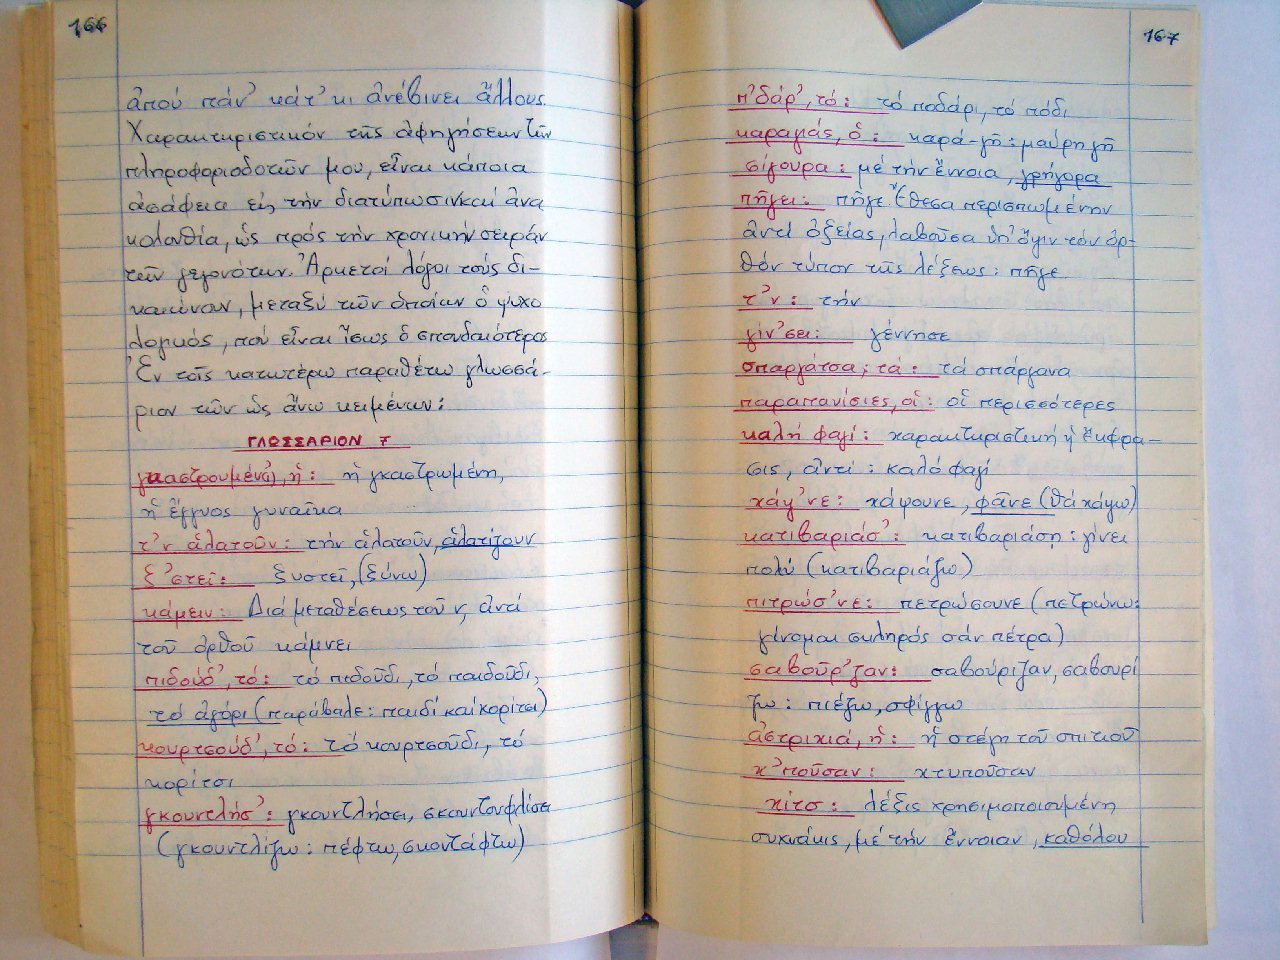 166
ἀπού πάν' κάτ' κι ἀνέβινει ἄλλους.
Χαρακτηριστικόν τῆς ἀφηγήσεων τῶν
πληροφοριοδοτῶν μου, εἶναι κάποια
ἀσάφεια εἰς τήν διατύπωσιν καί ἀνα
κολουθία, ὡς πρός τήν χρονικήν σειράν
τῶν γεγονότων. Ἀρκετοί λόγοι τούς δι-
καιώνουν, μεταξύ τῶν ὁποίων ὁ ψυχο
λογικός, πού εἶναι ἴσως ὁ σπουδαιότερος
Ἐν τοῖς κατωτέρω παραθέτω γλωσσά-
ριον τῶν ὡς ἄνω κειμένων:
ΓΛΩΣΣΑΡΙΟΝ 7
γκαστρουμέν', ἡ: ἡ γκαστρωμένη,
ἡ ἔγγυος γυναῖκα
τ'ν ἁλατοῦν: τήν ἁλατοῦν, ἁλατίζουν
ξ'στεῖ: ξυστεῖ, (ξύνω)
κάμειν: Διά μεταθέσεως τοῦ ν, ἀντί
τοῦ ὀρθοῦ κάμνει
πιδούδ', τό: τό πιδοῦδι, τό παιδοῦδι,
τό ἀγόρι (παράβαλε: παιδί καί κορίτσι)
κουρτσούδ', τό: τό κουρτσοῦδι, τό
κορίτσι
γκουντλήσ': γκουντλήσει, σκουντουφλίσει
(γκουντλίζω: πέφτω, σκοντάφτω)
167
π'δάρ', τό: τό ποδάρι, τό πόδι
καραγιάς, ὁ: καρά-γῆ: μαύρη γῆ
σίγουρα: μέ τήν ἔννοια, γρήγορα
πῆγει: πῆγε. Ἔθεσα περισπωμένην
ἀντί ὀξείας, λαβοῦσα ὑπ' ὄψιν τόν ὀρ-
θόν τύπον τῆς λέξεως: πῆγε
τ'ν: τήν
γίν'σει: γέννησε
σπαργάτσα, τά: τά σπάργανα
παραπανίσιες, οἱ: οἱ περισσότερες
καλή φαγί: χαρακτηριστική ἡ ἔκφρα-
σις, ἀντί: καλό φαγί
χάψ'νε: χάψουνε, φᾶνε (θά χάψω)
κατιβαριάσ': κατιβαριάση: γίνει
πολύ (κατιβαριάζω)
πιτρώσ'νε: πετρώσουνε (πετρώνω:
γίνομαι σκληρός σάν πέτρα)
σαβοῦρ'ζαν: σαβούριζαν, σαβουρί
ζω: πιέζω, σφίγγω
ἀστριχιά, ἡ: ἡ στέγη τοῦ σπιτιοῦ
χ'ποῦσαν: χτυποῦσαν
χίτσ: λέξις χρησιμοποιουμένη
συχνάκις, μέ τήν ἔννοιαν, καθόλου